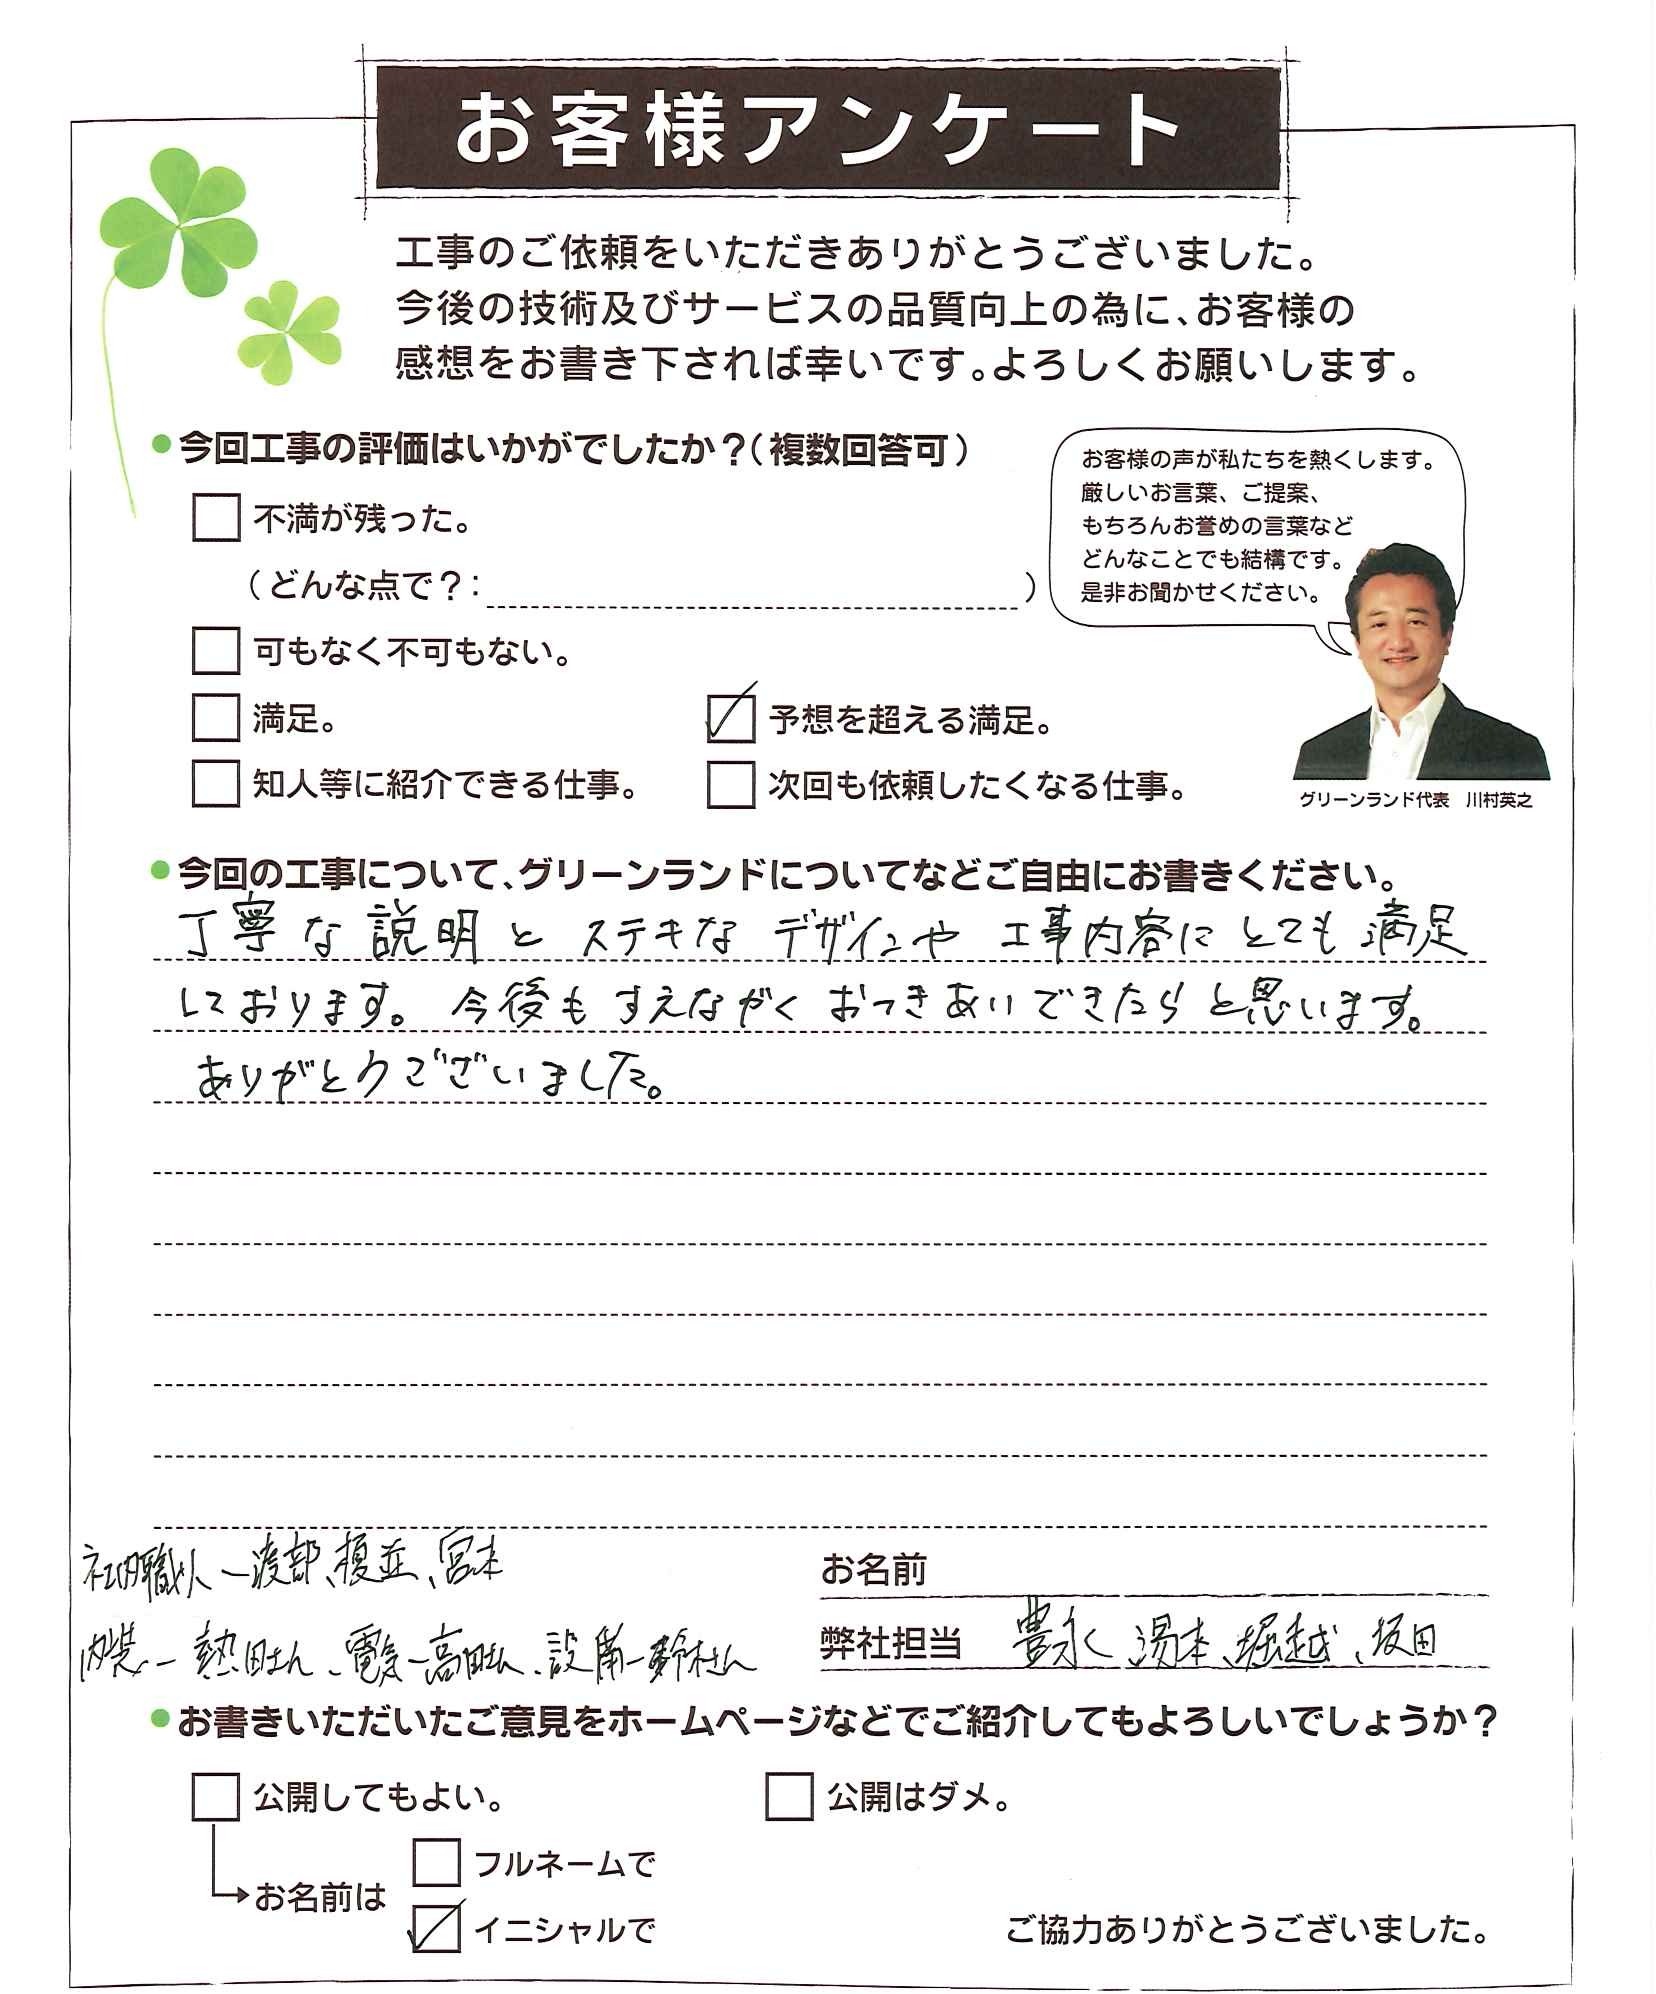 お客様アンケート
工事のご依頼をいただきありがとうございました。
今後の技術及びサービスの品質向上の為に、お客様の
感想をお書き下されば幸いです。よろしくお願いします。
●今回工事の評価はいかがでしたか？（複数回答可）
不満が残った。
（どんな点で？：　）
可もなく不可もない。
満足。
予想を超える満足。
知人等に紹介できる仕事。
次回も依頼したくなる仕事。
お客様の声が私たちを熱くします。
厳しいお言葉、ご提案、
もちろんお誉めの言葉など
どんなことでも結構です。
是非お聞かせください。
グリーンランド代表　川村英之
●今回の工事について、グリーンランドについてなどご自由にお書きください。
丁寧な説明とステキなデザインや工事内容にとても満足
しております。今後もすえながくおつきあいできたらと思います。
ありがとうございました。
社内職人ー渡部、榎並、宮本
内装ー熱田さん、電気ー高田さん、設備ー鈴木さん
お名前
弊社担当　豊永、湯本、堀越、坂田
●お書きいただいたご意見をホームページなどでご紹介してもよろしいでしょうか？
公開してもよい。
公開はダメ。
お名前は
フルネームで
イニシャルで
ご協力ありがとうございました。